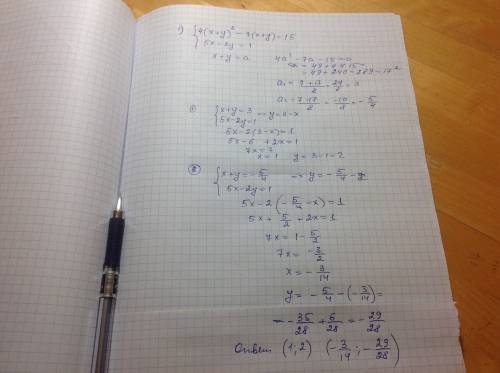 1) { 4(x+y)² − 7(x+y) = 15
5x−2y = 1
x+y = a   4a² − 7a − 15 = 0
D = 49 + 4·4·15 =
= 49 + 240 = 289 = 17²
a₁ = (7+17)/8 = 24/8 = 3
a₂ = (7−17)/8 = −10/8 = −5/4
① { x+y = 3 → y = 3−x
5x−2y = 1
5x−2(3−x) = 1
5x−6 +2x = 1
7x = 7
x = 1   y = 3−1 = 2
② { x+y = −5/4 → y = −5/4 − x
5x−2y = 1
5x−2(−5/4 −x) = 1
5x + 5/2 + 2x = 1
7x = 1 − 5/2
7x = −3/2
x = −3/14
y = −5/4 − (−3/14) =
= −35/28 + 6/28 = −29/28
Ответ (1; 2) (−3/14 ; −29/28)